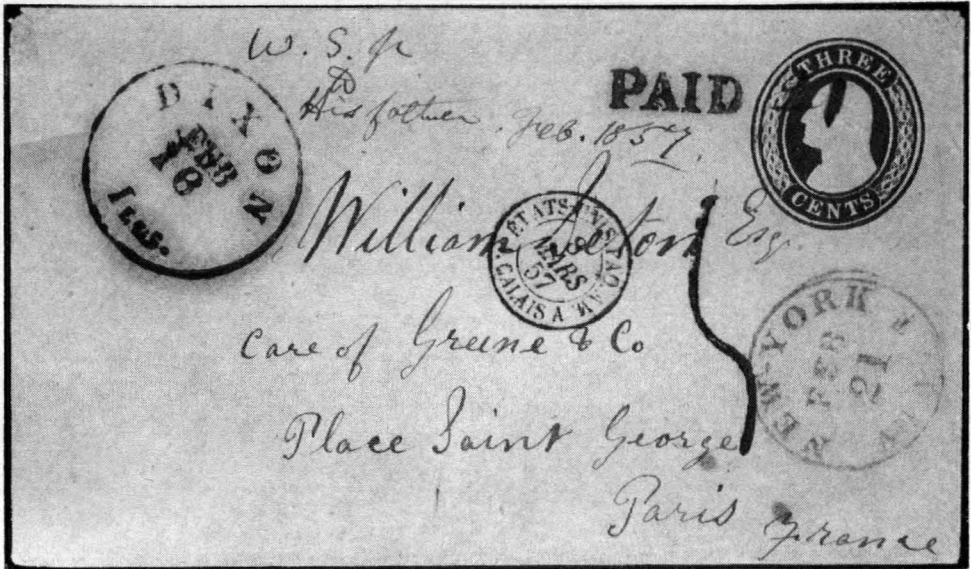 W. S. jr
to
His father. Feb. 1857.
PAID
THREE
CENTS
DIXON
FEB
18
Ills.
William Seton Esq.
ETATS-UNIS
8
MARS
57
CALAIS A.
care of Greene & Co
NEW-YORK
FEB
21
Place Saint George
Paris France